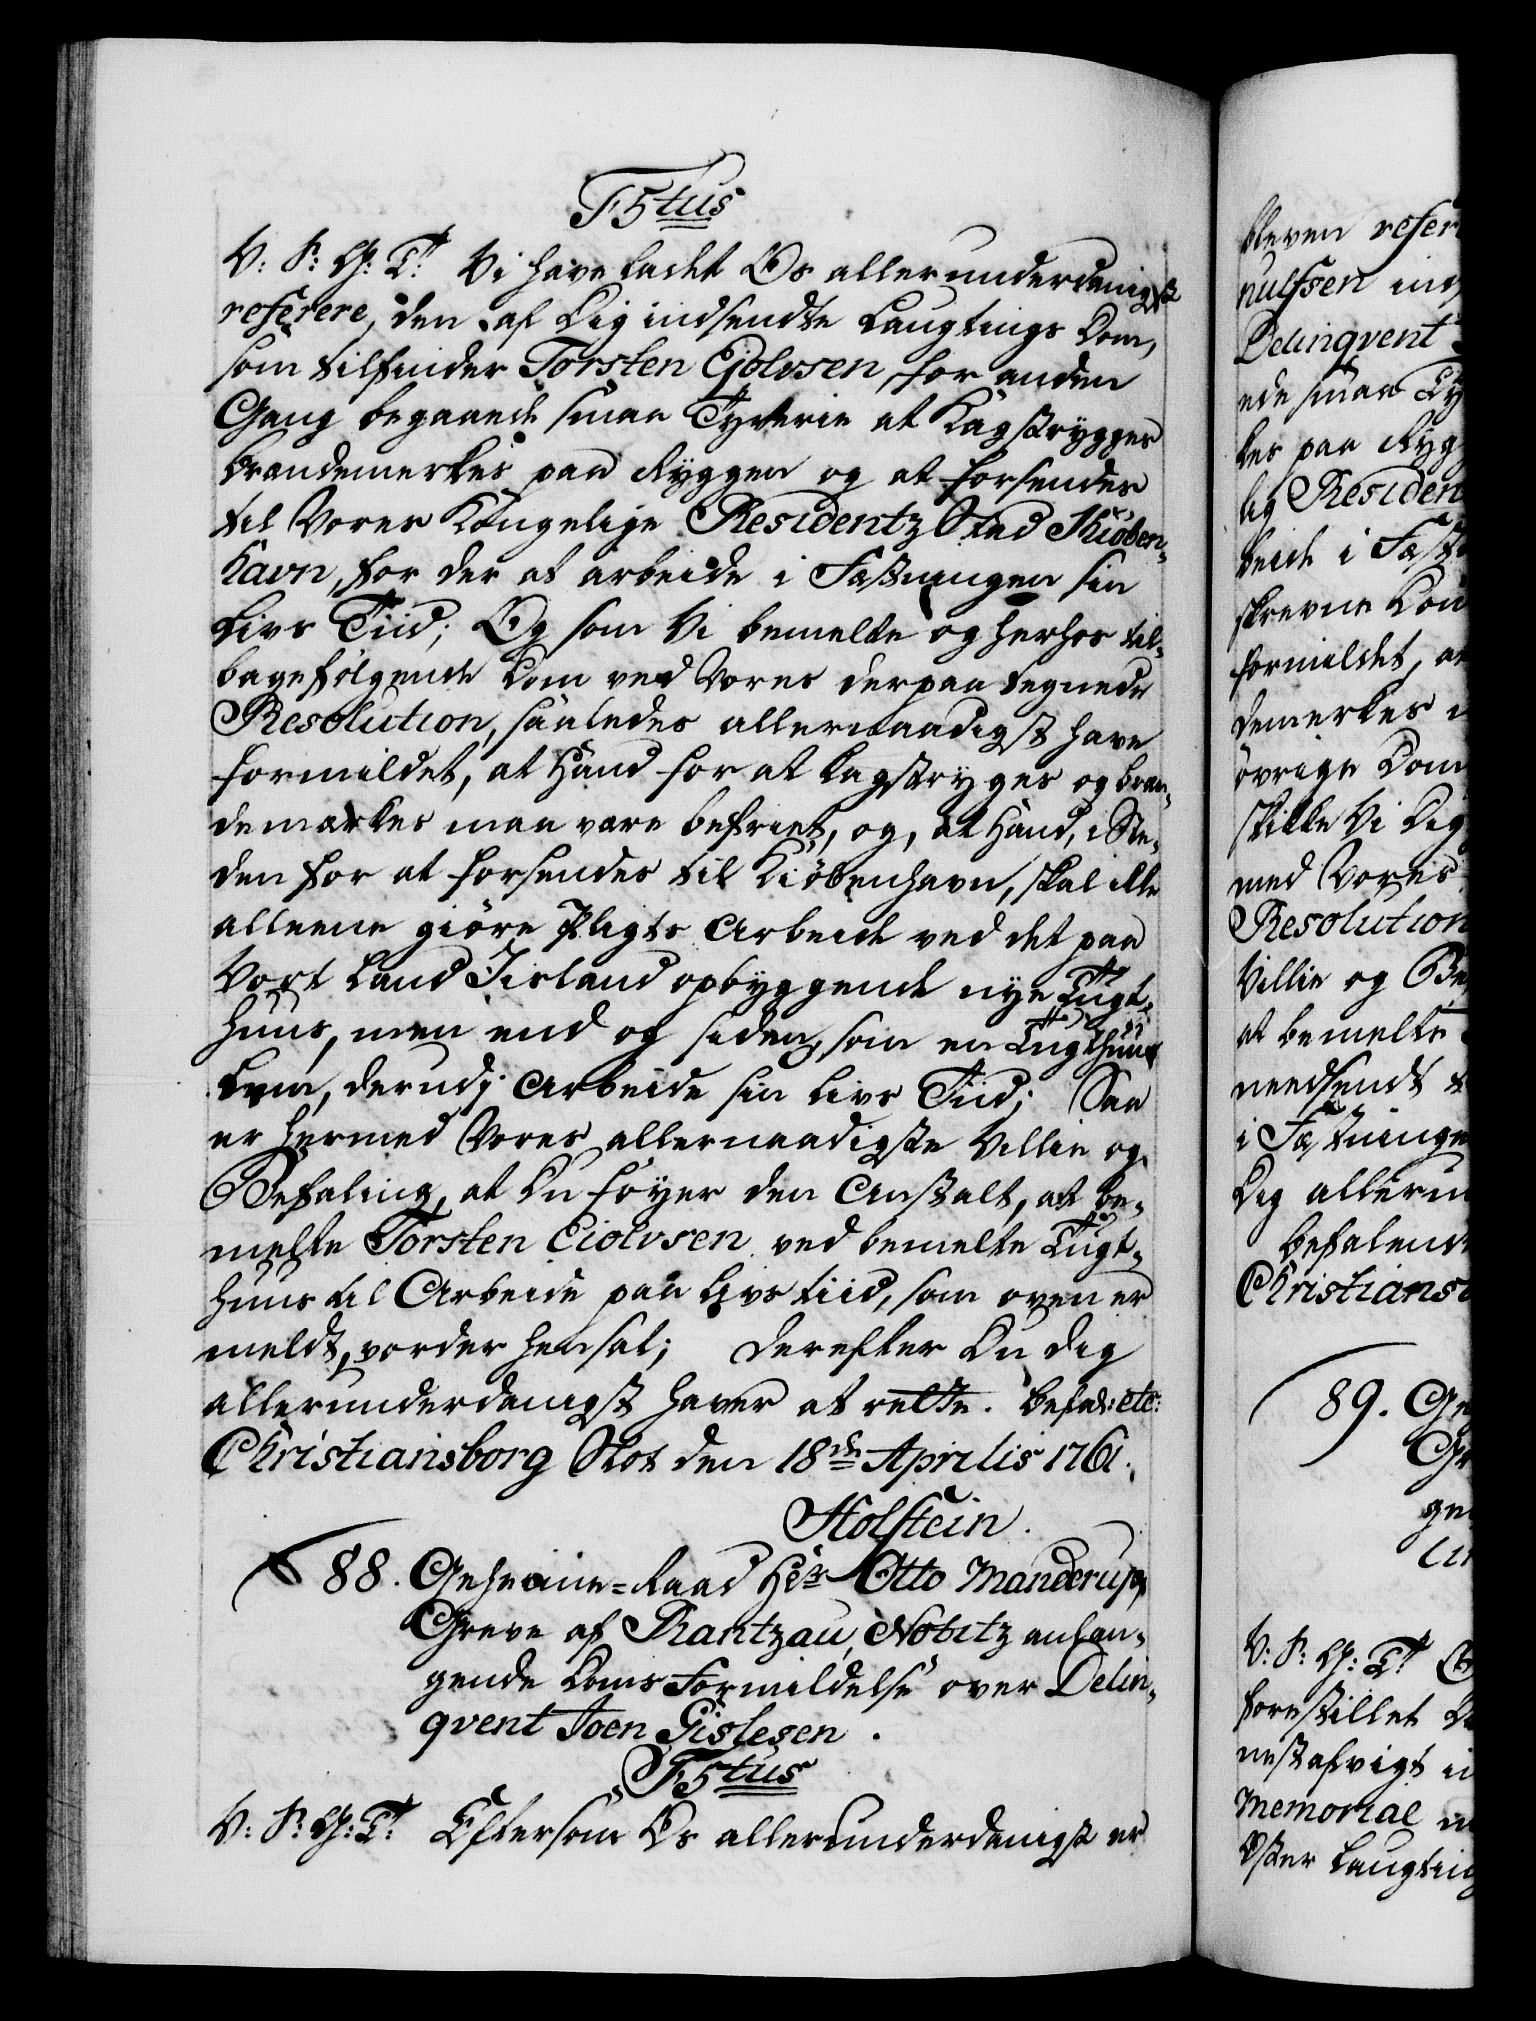 F5tus
V: F: G: T: Vi have ladet Os allerunderdanigst
referere, den af Dig indsendte Laugtings Dom,
som tilfinder Torsten Ejolvsen, for anden
Gang begaaede smaa Tyverie at Kagstrygges
brændemerkes paa Ryggen og at forsendes
til Vores Kongelige Residentz Stad Kiöben-
havn, for der at arbeide i Fæstningen sin
Livs Tiid; Og som Vi bemelte og herhos til-
bagefölgende Dom ved Vores derpaa tegnede
Resolution, saaledes allernaadigst have
formildet, at Hand for at kagstryges og bræn-
demærkes maa være befriet, og, at Hand, i Ste-
den for at forsendes til Kiöbenhavn, skal ikke
alleene giöre Pligts Arbeide ved det paa
Vort Land Iisland opbyggende nye Tugt-
huus, men end og siden, som en Tugthuus
Lem, derudj Arbeide sin Livs Tiid; Saa
er hermed Vores allernaadigste Villie og
Befaling, at Du föyer den Anstalt, at be-
melte Torsten Eiolvsen ved bemelte Tugt-
huus til Arbeide paa Livs tiid, som oven er
meldt, vorder hensat; Derefter Du dig
allerunderdanigst haver at rette. Befal: etc:
Christiansborg Slot den 18de Aprilis 1761.
Holstein.
88. Geheime-Raad Hr Otto Manderup,
Greve af Rantzau, Notitz anlan-
gende Doms Formildelse over Delin-
qvent Joen Gislesen.
F5tus
V: F: G: T: Eftersom Os allerunderdanigst er
bleven refer
nulfsen ind
Delinqvent
ede smaa Ty
kes paa Ryg
lig Residen
beide i Fæst
skrevne Dom
formildet, at
demerkes
övrige Dom
skikke Vi Dig
med Vores
Resolution
Villie og Be
at bemelte
needsendt t
i Fæstninge
Dig allerun
befalend
Christians
89. Ge
Gr
ge
V: F: G: T:
forestillet
nest afvigt
Memorial
Öster Laugting